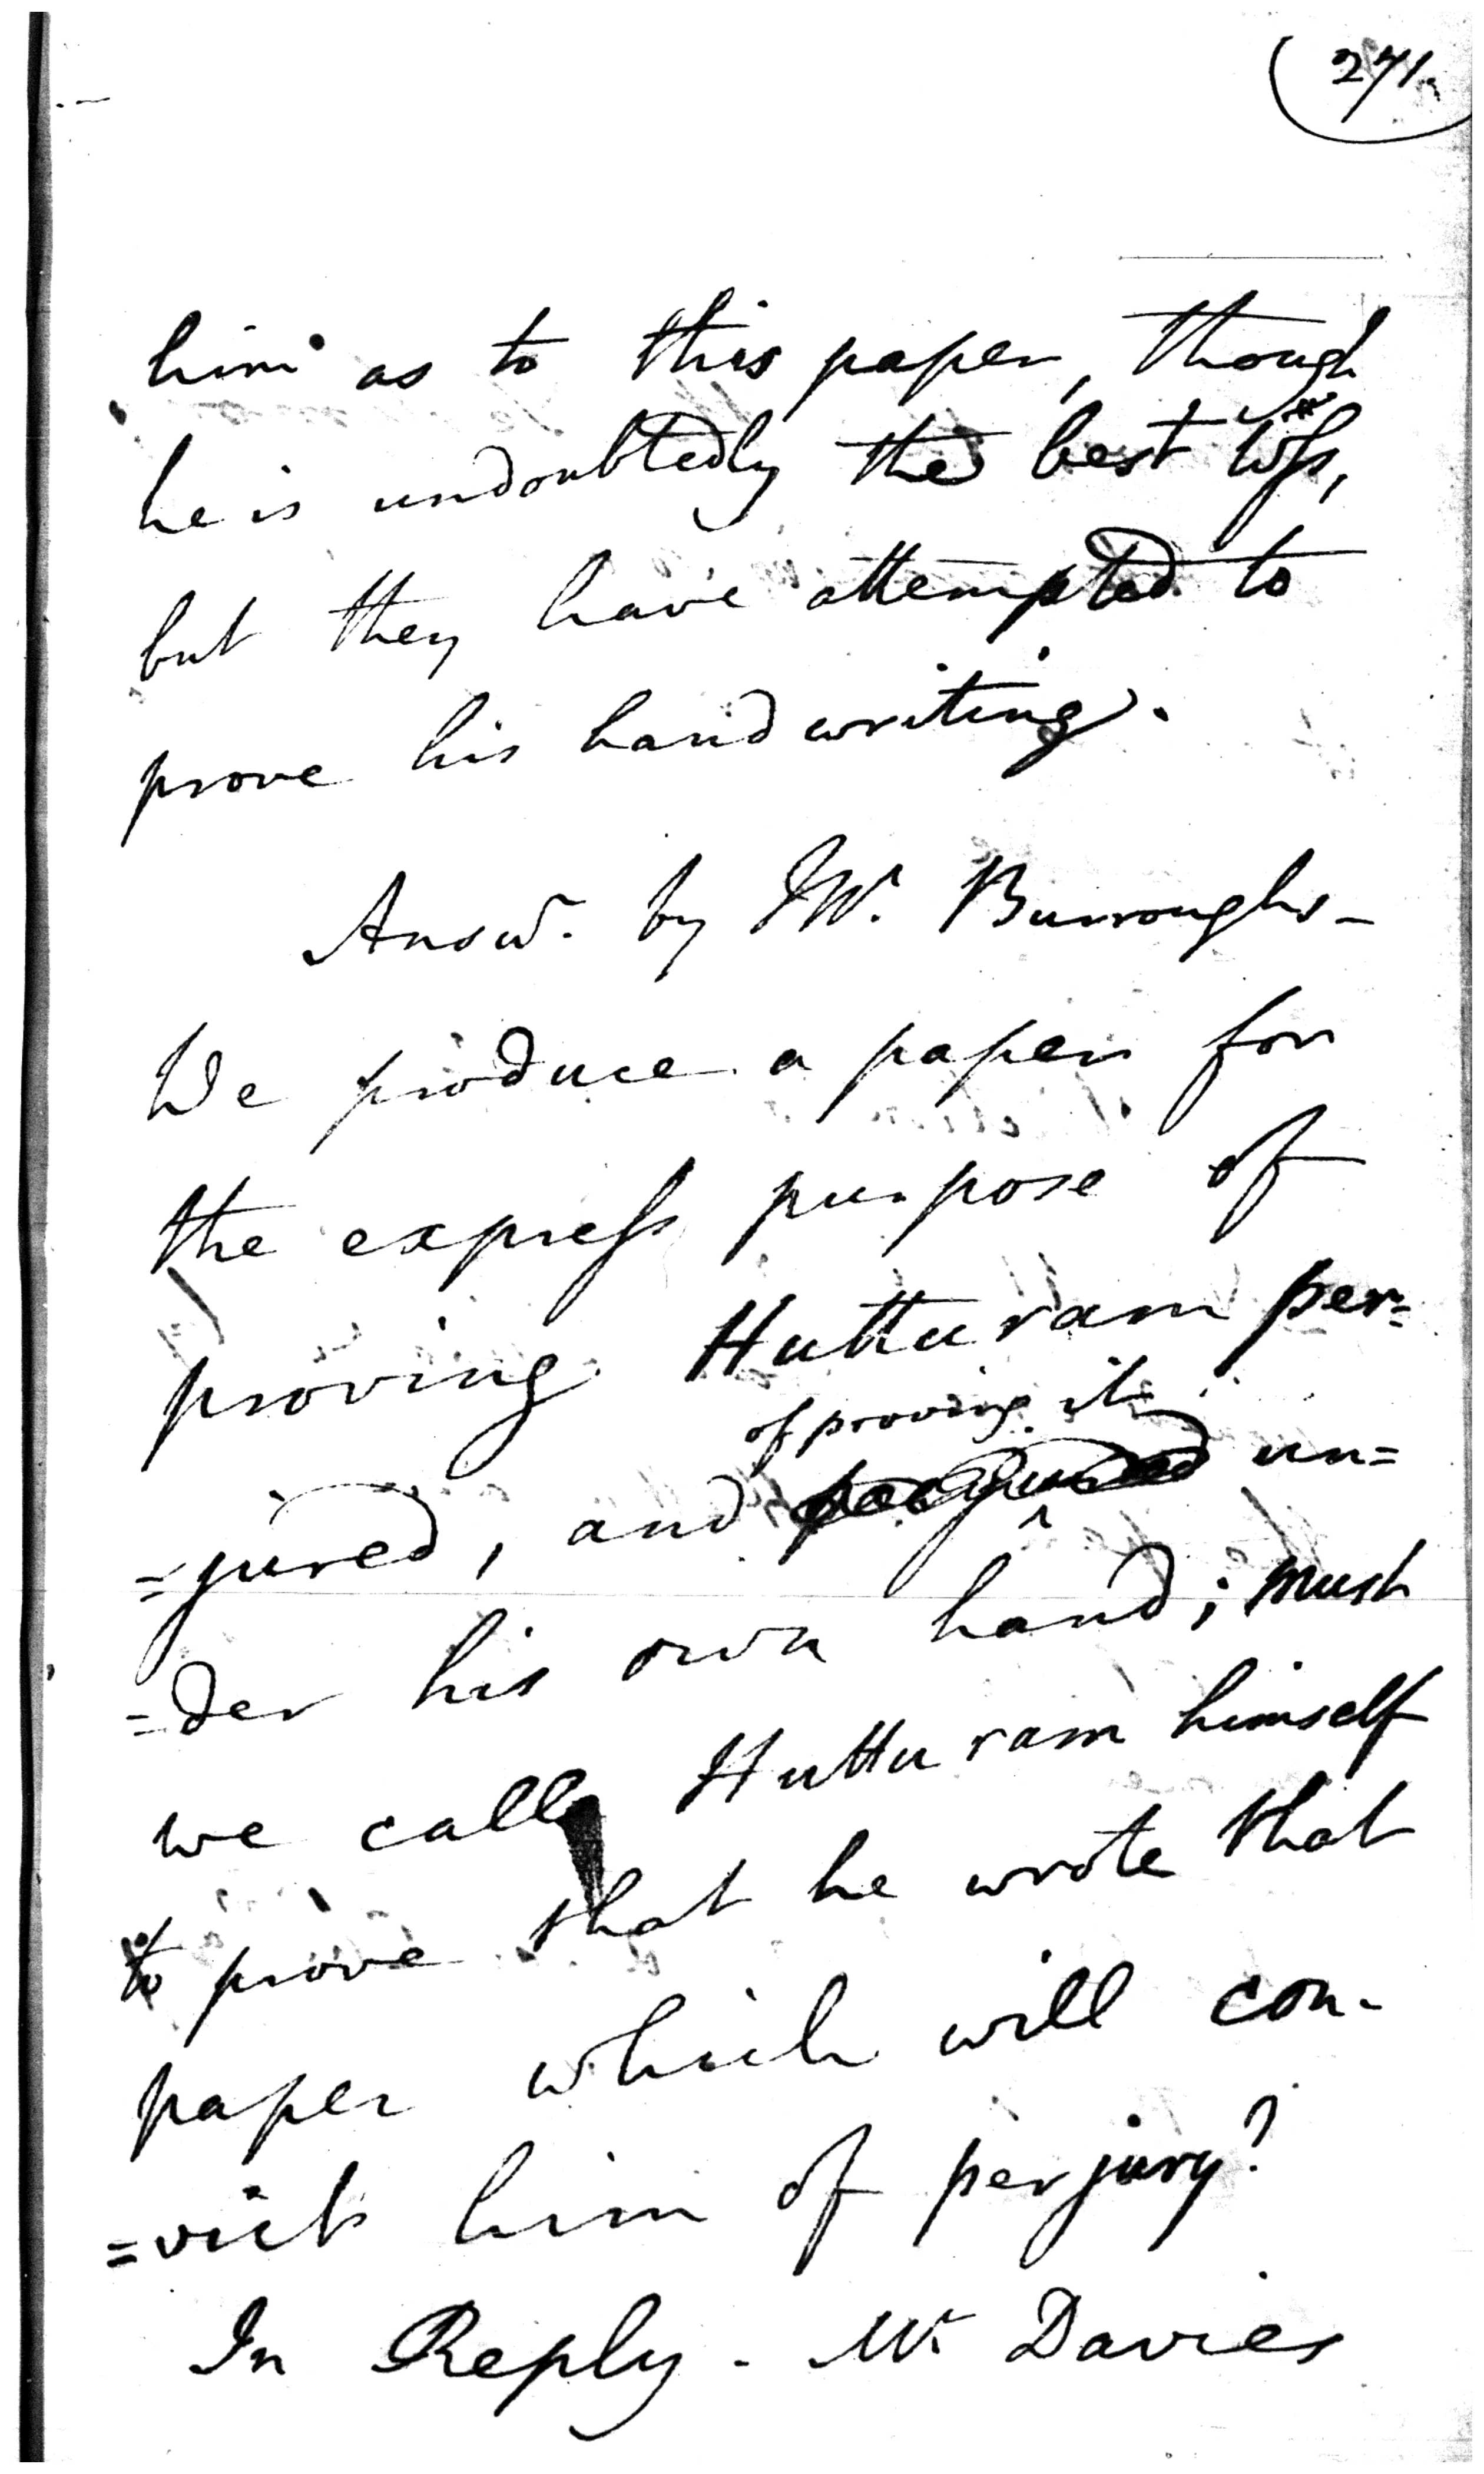 271.
him as to this paper, though
he is undoubtedly the best Wss,
but they have attempted to
prove his handwriting.
Answ.r by Mr. Burroughs –
We produce a paper for
the express purpose of
proving Huttu ram per=
of proving it
=jured, and perjured un=
=der his own hand; must
we call Huttu ram himself
to prove that he wrote that
paper which will con-
=vict him of perjury?
In Reply. Mr Davies